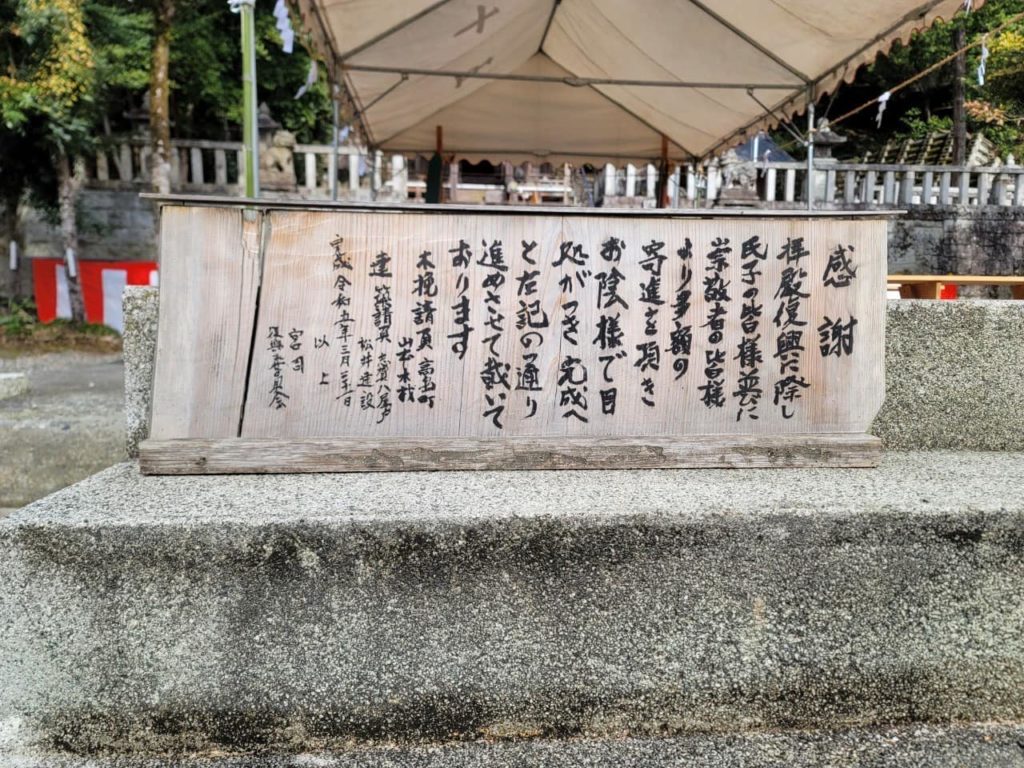 感謝
拝殿復興に際し
氏子の皆様並びに
崇敬者の皆様
より多額の
寄進を頂き
お陰様で目
処がつき完成へ
と左記の通り
進めさせて戴いて
おります
木挽請負 高島町
山本木材
建築請負
松井建設
令和五年三月
以上
宮司
復興委員会